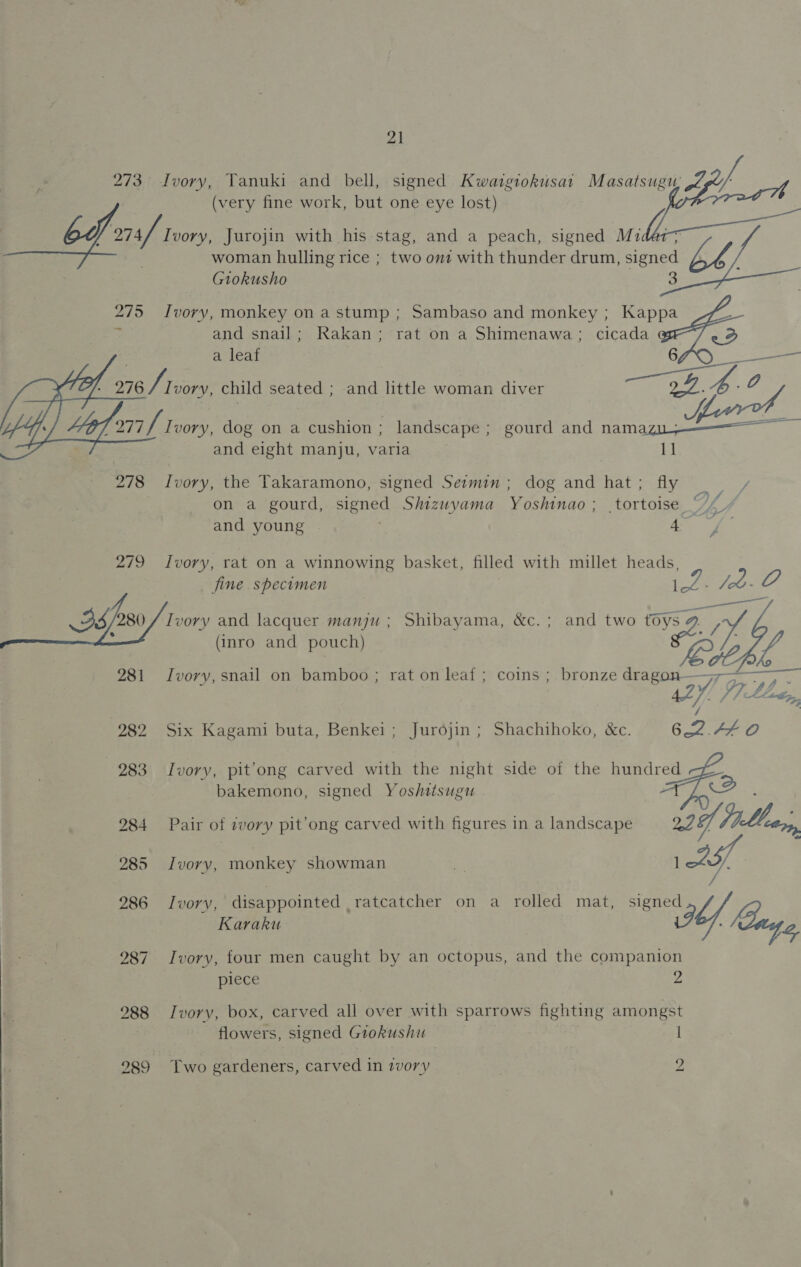 21
273 Ivory, Tanuki and bell, signed Kwaigiokusai Masatsugu
(very fine work, but one eye lost)
274 Ivory, Jurojin with his stag, and a peach, signed
woman hulling rice ; two oni with thunder drum, signed
Giokusho 3
275 Ivory, monkey on a stump ; Sambaso and monkey ; Kappa
and snail ; Rakan ; rat on a Shimenawa ; cicada
a leaf 6
276 Ivory, child seated ; and little woman diver
277 Ivory, dog on a cushion ; landscape ; gourd and namazu ;
and eight manju, varia 11
278 Ivory, the Takaramono, signed Seimin ; dog and hat ; fly
on a gourd, signed Shizuyama Yoshinao ; tortoise
and young 4
279 Ivory, rat on a winnowing basket, filled with millet heads,
fine specimen 1
280 Ivory and lacquer manju ; Shibayama, &c. ; and two toys
(inro and pouch) 8
281 Ivory, snail on bamboo ; rat on leaf ; coins ; bronze dragon
4
282 Six Kagami buta, Benkei ; Jurójin ; Shachihoko, &c. 6
283 Ivory, pit'ong carved with the night side of the hundred
bakemono, signed Yoshitsugu
284 Pair of ivory pit'ong carved with figures in a landscape 2
285 Ivory, monkey showman 1
286 Ivory, disappointed ratcatcher on a rolled mat, signed
Karaku
287 Ivory, four men caught by an octopus, and the companion
piece 2
288 Ivory, box, carved all over with sparrows fighting amongst
flowers, signed Giokushu 1
289 Two gardeners, carved in ivory 2